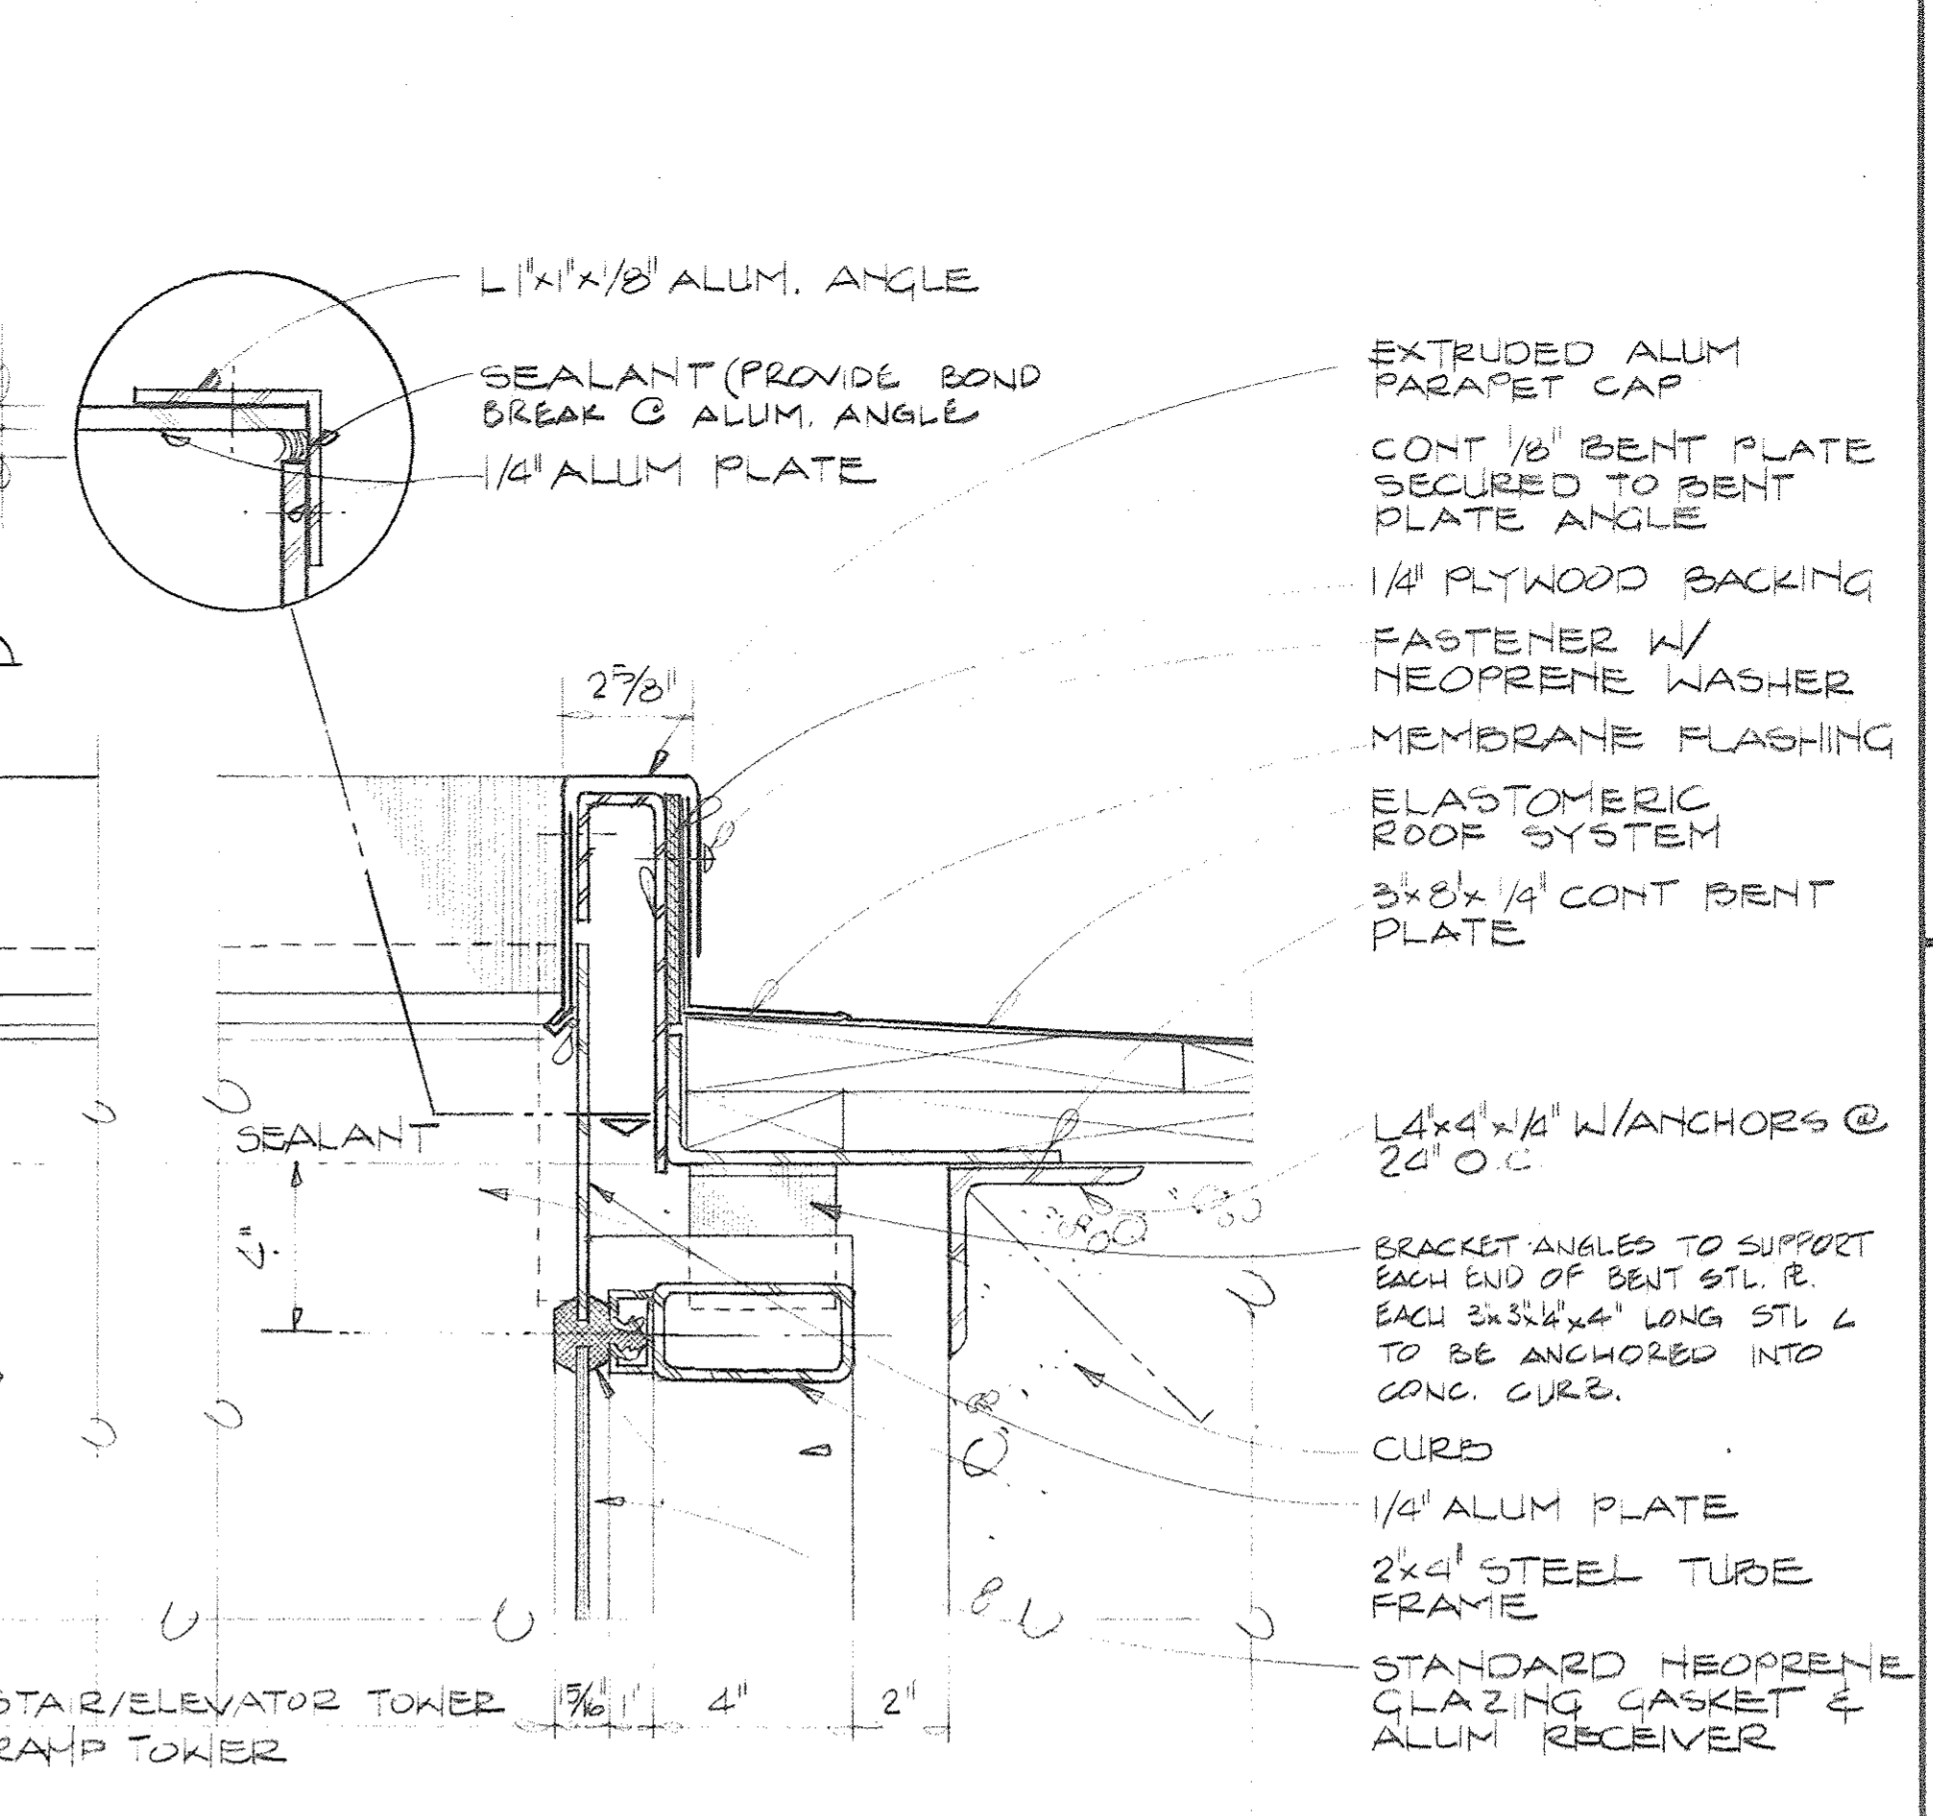 L 1"x1"x1/8" ALUM. ANGLE
SEALANT (PROVIDE BOND
BREAK @ ALUM. ANGLE
1/4" ALUM PLATE
2 5/8"
SEALANT
4"
STAIR/ELEVATOR TOWER
RAMP TOWER
1"
4"
2"
EXTRUDED ALUM
PARAPET CAP
CONT 1/8" BENT PLATE
SECURED TO BENT
PLATE ANGLE
1/4" PLYWOOD BACKING
FASTENER W/
NEOPRENE WASHER
MEMBRANE FLASHING
ELASTOMERIC
ROOF SYSTEM
3"x8"x1/4" CONT BENT
PLATE
L4"x4"x1/4" W/ANCHORS @
24" O.C.
BRACKET ANGLES TO SUPPORT
EACH END OF BENT STL. PL.
EACH 3"x3"x1/4"x4" LONG STL L
TO BE ANCHORED INTO
CONC. CURB.
CURB
1/4" ALUM PLATE
2"x4" STEEL TUBE
FRAME
STANDARD NEOPRENE
GLAZING GASKET &
ALUM RECEIVER